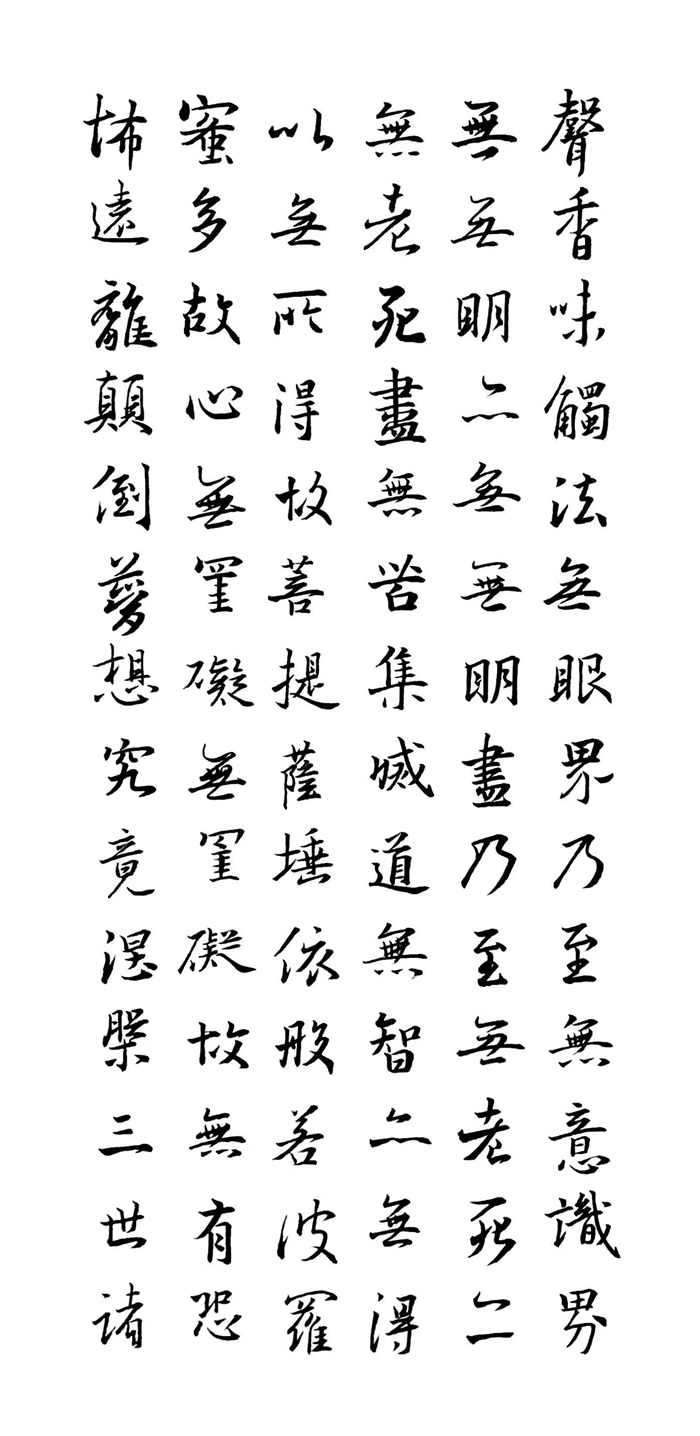 聲香味觸法無眼界乃至無意識界
無無明亦無無明盡乃至無老死亦
無老死盡無苦集滅道無智亦無得
以無所得故菩提薩埵依般若波羅
蜜多故心無罣礙無罣礙故無有恐
怖遠離顛倒夢想究竟涅槃三世諸